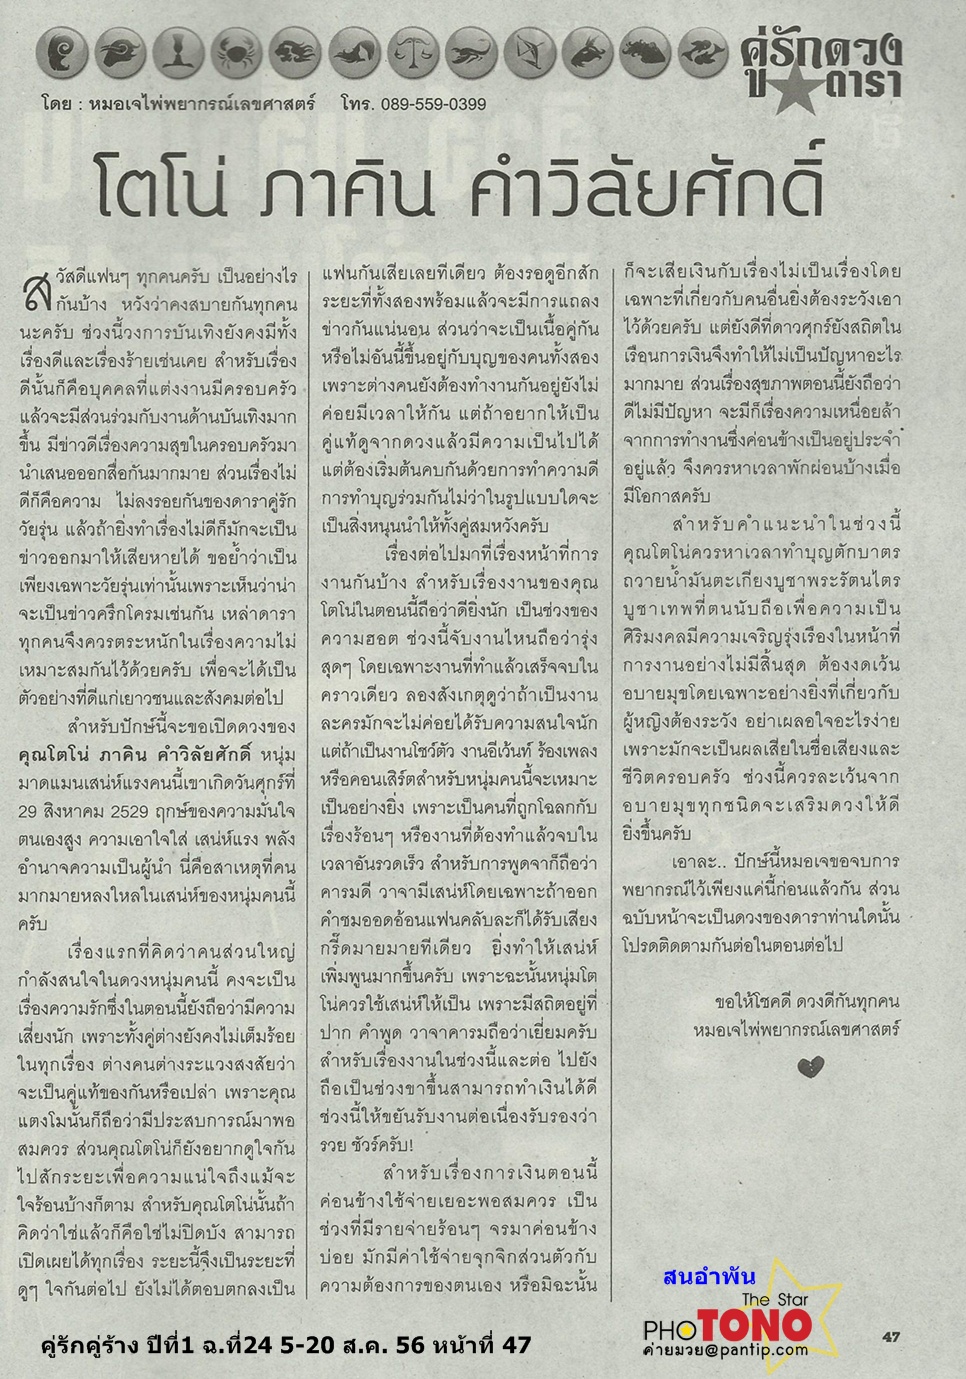 คู่รักดวงดารา
โดย : หมอเจไพ่พยากรณ์เลขศาสตร์ โทร. 089-559-0399
โตโน่ ภาคิน คำวิลัยศักดิ์
สวัสดีแฟนๆ ทุกคนครับ เป็นอย่างไร
กันบ้าง หวังว่าคงสบายกันทุกคน
นะครับ ช่วงนี้วงการบันเทิงยังคงมีทั้ง
เรื่องดีและเรื่องร้ายเช่นเคย สำหรับเรื่อง
ดีนั้นก็คือบุคคลที่แต่งงานมีครอบครัว
แล้วจะมีส่วนร่วมกับงานด้านบันเทิงมาก
ขึ้น มีข่าวดีเรื่องความสุขในครอบครัวมา
นำเสนอออกสื่อกันมากมาย ส่วนเรื่องไม่
ดีก็คือความ ไม่ลงรอยกันของดาราคู่รัก
วัยรุ่น แล้วถ้ายิ่งทำเรื่องไม่ดีก็มักจะเป็น
ข่าวออกมาให้เสียหายได้ ขอย้ำว่าเป็น
เพียงเฉพาะวัยรุ่นเท่านั้นเพราะเห็นว่าน่า
จะเป็นข่าวครึกโครมเช่นกัน เหล่าดารา
ทุกคนจึงควรตระหนักในเรื่องความไม่
เหมาะสมกันไว้ด้วยครับ เพื่อจะได้เป็น
ตัวอย่างที่ดีแก่เยาวชนและสังคมต่อไป
สำหรับปักษ์นี้จะขอเปิดดวงของ
คุณโตโน่ ภาคิน คำวิลัยศักดิ์ หนุ่ม
มาดแมนเสน่ห์แรงคนนี้เขาเกิดวันศุกร์ที่
29 สิงหาคม 2529 ฤกษ์ของความมั่นใจ
ตนเองสูง ความเอาใจใส่ เสน่ห์แรง พลัง
อำนาจความเป็นผู้นำ นี่คือสาเหตุที่คน
มากมายหลงใหลในเสน่ห์ของหนุ่มคนนี้
ครับ
เรื่องแรกที่คิดว่าคนส่วนใหญ่
กำลังสนใจในดวงหนุ่มคนนี้ คงจะเป็น
เรื่องความรักซึ่งในตอนนี้ยังถือว่ามีความ
เสี่ยงนัก เพราะทั้งคู่ต่างยังคงไม่เต็มร้อย
ในทุกเรื่อง ต่างคนต่างระแวงสงสัยว่า
จะเป็นคู่แท้ของกันหรือเปล่า เพราะคุณ
แตงโมนั้นก็ถือว่ามีประสบการณ์มาพอ
สมควร ส่วนคุณโตโน่ก็ยังอยากดูใจกัน
ไปสักระยะเพื่อความแน่ใจถึงแม้จะ
ใจร้อนบ้างก็ตาม สำหรับคุณโตโน่นั้นถ้า
คิดว่าใช่แล้วก็คือใช่ไม่ปิดบัง สามารถ
เปิดเผยได้ทุกเรื่อง ระยะนี้จึงเป็นระยะที่
ดูๆ ใจกันต่อไป ยังไม่ได้ตอบตกลงเป็น
แฟนกันเสียเลยทีเดียว ต้องรอดูอีกสัก
ระยะที่ทั้งสองพร้อมแล้วจะมีการแถลง
ข่าวกันแน่นอน ส่วนว่าจะเป็นเนื้อคู่กัน
หรือไม่อันนี้ขึ้นอยู่กับบุญของคนทั้งสอง
เพราะต่างคนยังต้องทำงานกันอยู่ยังไม่
ค่อยมีเวลาให้กัน แต่ถ้าอยากให้เป็น
คู่แท้ดูจากดวงแล้วมีความเป็นไปได้
แต่ต้องเริ่มต้นคบกันด้วยการทำความดี
การทำบุญร่วมกันไม่ว่าในรูปแบบใดจะ
เป็นสิ่งหนุนนำให้ทั้งคู่สมหวังครับ
เรื่องต่อไปมาที่เรื่องหน้าที่การ
งานกันบ้าง สำหรับเรื่องงานของคุณ
โตโน่ในตอนนี้ถือว่าดียิ่งนัก เป็นช่วงของ
ความฮอต ช่วงนี้จับงานไหนถือว่ารุ่ง
สุดๆ โดยเฉพาะงานที่ทำแล้วเสร็จจบใน
คราวเดียว ลองสังเกตุดูว่าถ้าเป็นงาน
ละครมักจะไม่ค่อยได้รับความสนใจนัก
แต่ถ้าเป็นงานโชว์ตัว งานอีเว้นท์ ร้องเพลง
หรือคอนเสิร์ตสำหรับหนุ่มคนนี้จะเหมาะ
เป็นอย่างยิ่ง เพราะเป็นคนที่ถูกโฉลกกับ
เรื่องร้อนๆ หรืองานที่ต้องทำแล้วจบใน
เวลาอันรวดเร็ว สำหรับการพูดจาก็ถือว่า
คารมดี วาจามีเสน่ห์โดยเฉพาะถ้าออก
คำชมออดอ้อนแฟนคลับละก็ได้รับเสียง
กรี๊ดมายมายทีเดียว ยิ่งทำให้เสน่ห์
เพิ่มพูนมากขึ้นครับ เพราะฉะนั้นหนุ่มโต
โน่ควรใช้เสน่ห์ให้เป็น เพราะมีสถิตอยู่ที่
ปาก คำพูด วาจาคารมถือว่าเยี่ยมครับ
สำหรับเรื่องงานในช่วงนี้และต่อ ไปยัง
ถือเป็นช่วงขาขึ้นสามารถทำเงินได้ดี
ช่วงนี้ให้ขยันรับงานต่อเนื่องรับรองว่า
รวย ชัวร์ครับ!
สำหรับเรื่องการเงินตอนนี้
ค่อนข้างใช้จ่ายเยอะพอสมควร เป็น
ช่วงที่มีรายจ่ายร้อนๆ จรมาค่อนข้าง
บ่อย มักมีค่าใช้จ่ายจุกจิกส่วนตัวกับ
ความต้องการของตนเอง หรือมิฉะนั้น
ก็จะเสียเงินกับเรื่องไม่เป็นเรื่องโดย
เฉพาะที่เกี่ยวกับคนอื่นยิ่งต้องระวังเอา
ไว้ด้วยครับ แต่ยังดีที่ดาวศุกร์ยังสถิตใน
เรือนการเงินจึงทำให้ไม่เป็นปัญหาอะไร
มากมาย ส่วนเรื่องสุขภาพตอนนี้ยังถือว่า
ดีไม่มีปัญหา จะมีก็เรื่องความเหนื่อยล้า
จากการทำงานซึ่งค่อนข้างเป็นอยู่ประจำ
อยู่แล้ว จึงควรหาเวลาพักผ่อนบ้างเมื่อ
มีโอกาสครับ
สำหรับคำแนะนำในช่วงนี้
คุณโตโน่ควรหาเวลาทำบุญตักบาตร
ถวายน้ำมันตะเกียงบูชาพระรัตนไตร
บูชาเทพที่ตนนับถือเพื่อความเป็น
ศิริมงคลมีความเจริญรุ่งเรืองในหน้าที่
การงานอย่างไม่มีสิ้นสุด ต้องงดเว้น
อบายมุขโดยเฉพาะอย่างยิ่งที่เกี่ยวกับ
ผู้หญิงต้องระวัง อย่าเผลอใจอะไรง่าย
เพราะมักจะเป็นผลเสียในชื่อเสียงและ
ชีวิตครอบครัว ช่วงนี้ควรละเว้นจาก
อบายมุขทุกชนิดจะเสริมดวงให้ดี
ยิ่งขึ้นครับ
เอาละ.. ปักษ์นี้หมอเจขอจบการ
พยากรณ์ไว้เพียงแค่นี้ก่อนแล้วกัน ส่วน
ฉบับหน้าจะเป็นดวงของดาราท่านใดนั้น
โปรดติดตามกันต่อในตอนต่อไป
ขอให้โชคดี ดวงดีกันทุกคน
หมอเจไพ่พยากรณ์เลขศาสตร์
สนอำพัน
The Star
PHOTONO
ค่ายมวย@pantip.com
47
คู่รักคู่ร้าง ปีที่1 ฉ.ที่24 5-20 ส.ค. 56 หน้าที่ 47